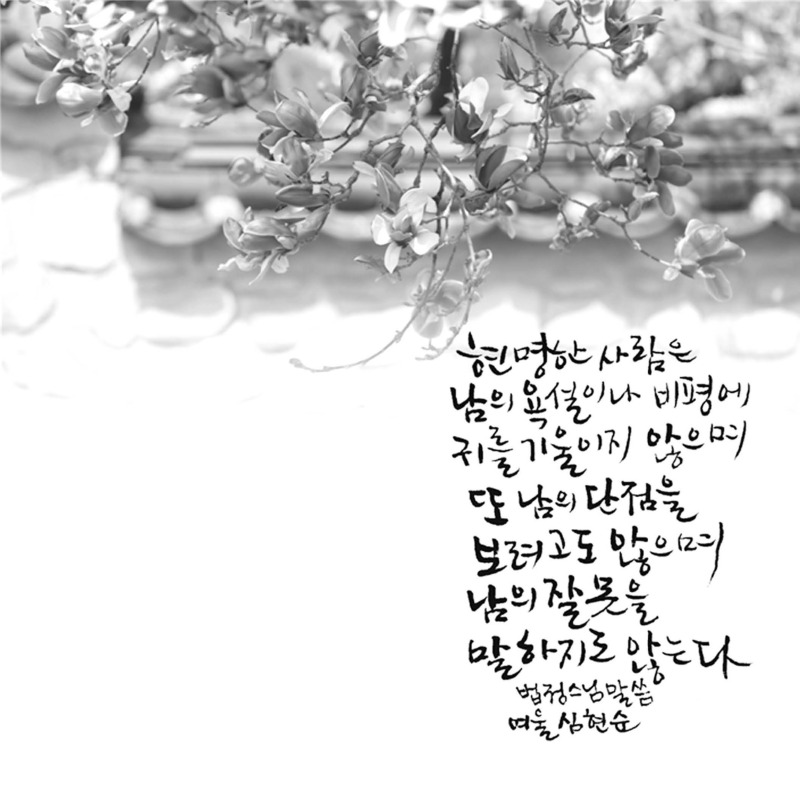 현명한 사람은
남의 욕설이나 비평에
귀를 기울이지 않으며
또 남의 단점을
보려고도 않으며
남의 잘못을
말하지도 않는다
법정스님말씀
여울 심현순